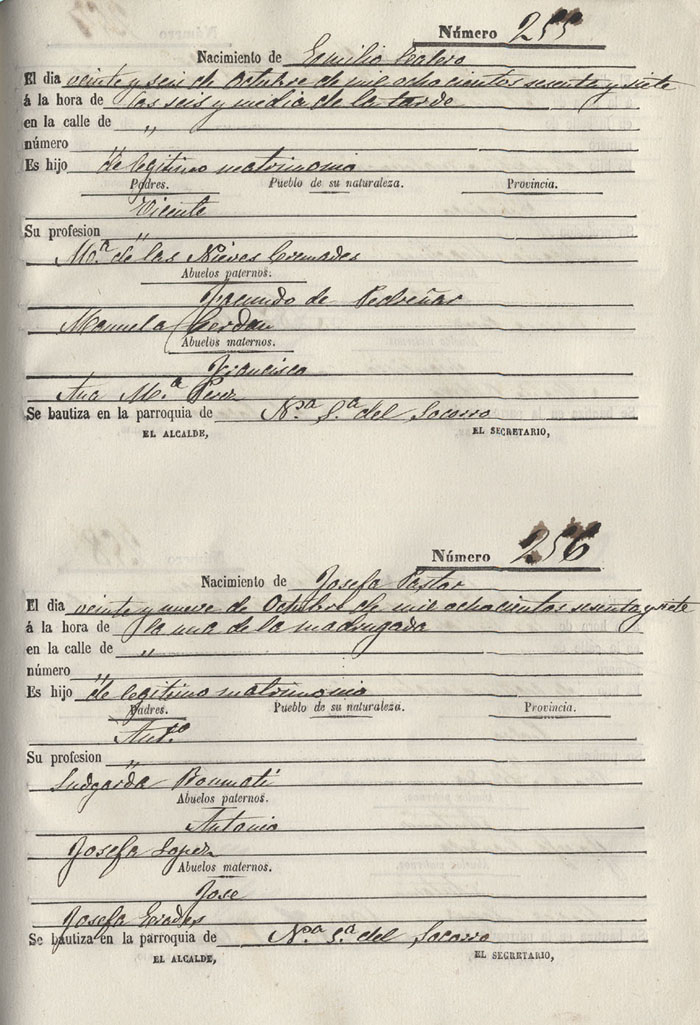 Número 255
Nacimiento de Emilio
El dia veinte y seis de Octubre de mil ochocientos sesenta y siete
á la hora de las seis y media de la tarde
en la calle de "
número "
Es hijo de legitimo matrimonio
Padres. Pueblo de su naturaleza. Provincia.
Vicente
Su profesion "
Mª de las Nieves Cremades
Abuelos paternos.
Facundo de Pedreñar
Manuela Cerdan
Abuelos maternos.
Francisco
Ana Mª Perez
Se bautiza en la parroquia de Nª Sª del Socorro
EL ALCALDE, EL SECRETARIO,
Número 256
Nacimiento de Josefa Pastor
El dia veinte y nueve de Octubre de mil ochocientos sesenta y siete
á la hora de la una de la madrugada
en la calle de "
número "
Es hijo de legitimo matrimonio
Padres. Pueblo de su naturaleza. Provincia.
Antº
Su profesion "
Ludgarda Bonmati
Abuelos paternos.
Antonio
Josefa Lopez
Abuelos maternos.
Jose
Josefa
Se bautiza en la parroquia de Nª Sª del Socorro
EL ALCALDE, EL SECRETARIO,